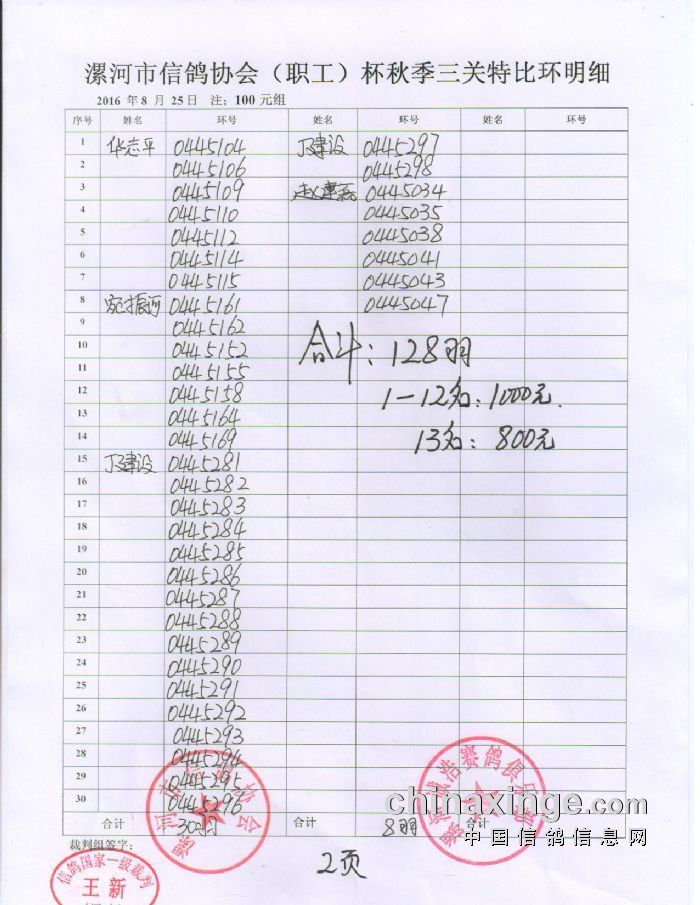 漯河市信鸽协会（职工）杯秋季三关特比环明细
2016 年 8 月 25 日 注：100 元组
序号 姓名 环号 姓名 环号 姓名 环号
1 华志平 0445104 丁建设 0445297
2 0445106 0445298
3 0445109 0445034
4 0445110 0445035
5 0445112 0445038
6 0445114 0445041
7 0445115 0445043
8 宛振河 0445161 0445047
9 0445162
10 0445152
11 0445155
12 0445158
13 0445164
14 0445169
15 丁建设 0445281
16 0445282
17 0445283
18 0445284
19 0445285
20 0445286
21 0445287
22 0445288
23 0445289
24 0445290
25 0445291
26 0445292
27 0445293
28 0445294
29 0445295
30 0445296
合计：128羽
1－12名：1000元.
13名：800元
合计 30羽 合计 8羽 合计
裁判组签字：
2页
漯河市信鸽协会
信鸽国家一级裁判
王新
chinaxinge.com
中国信鸽信息网